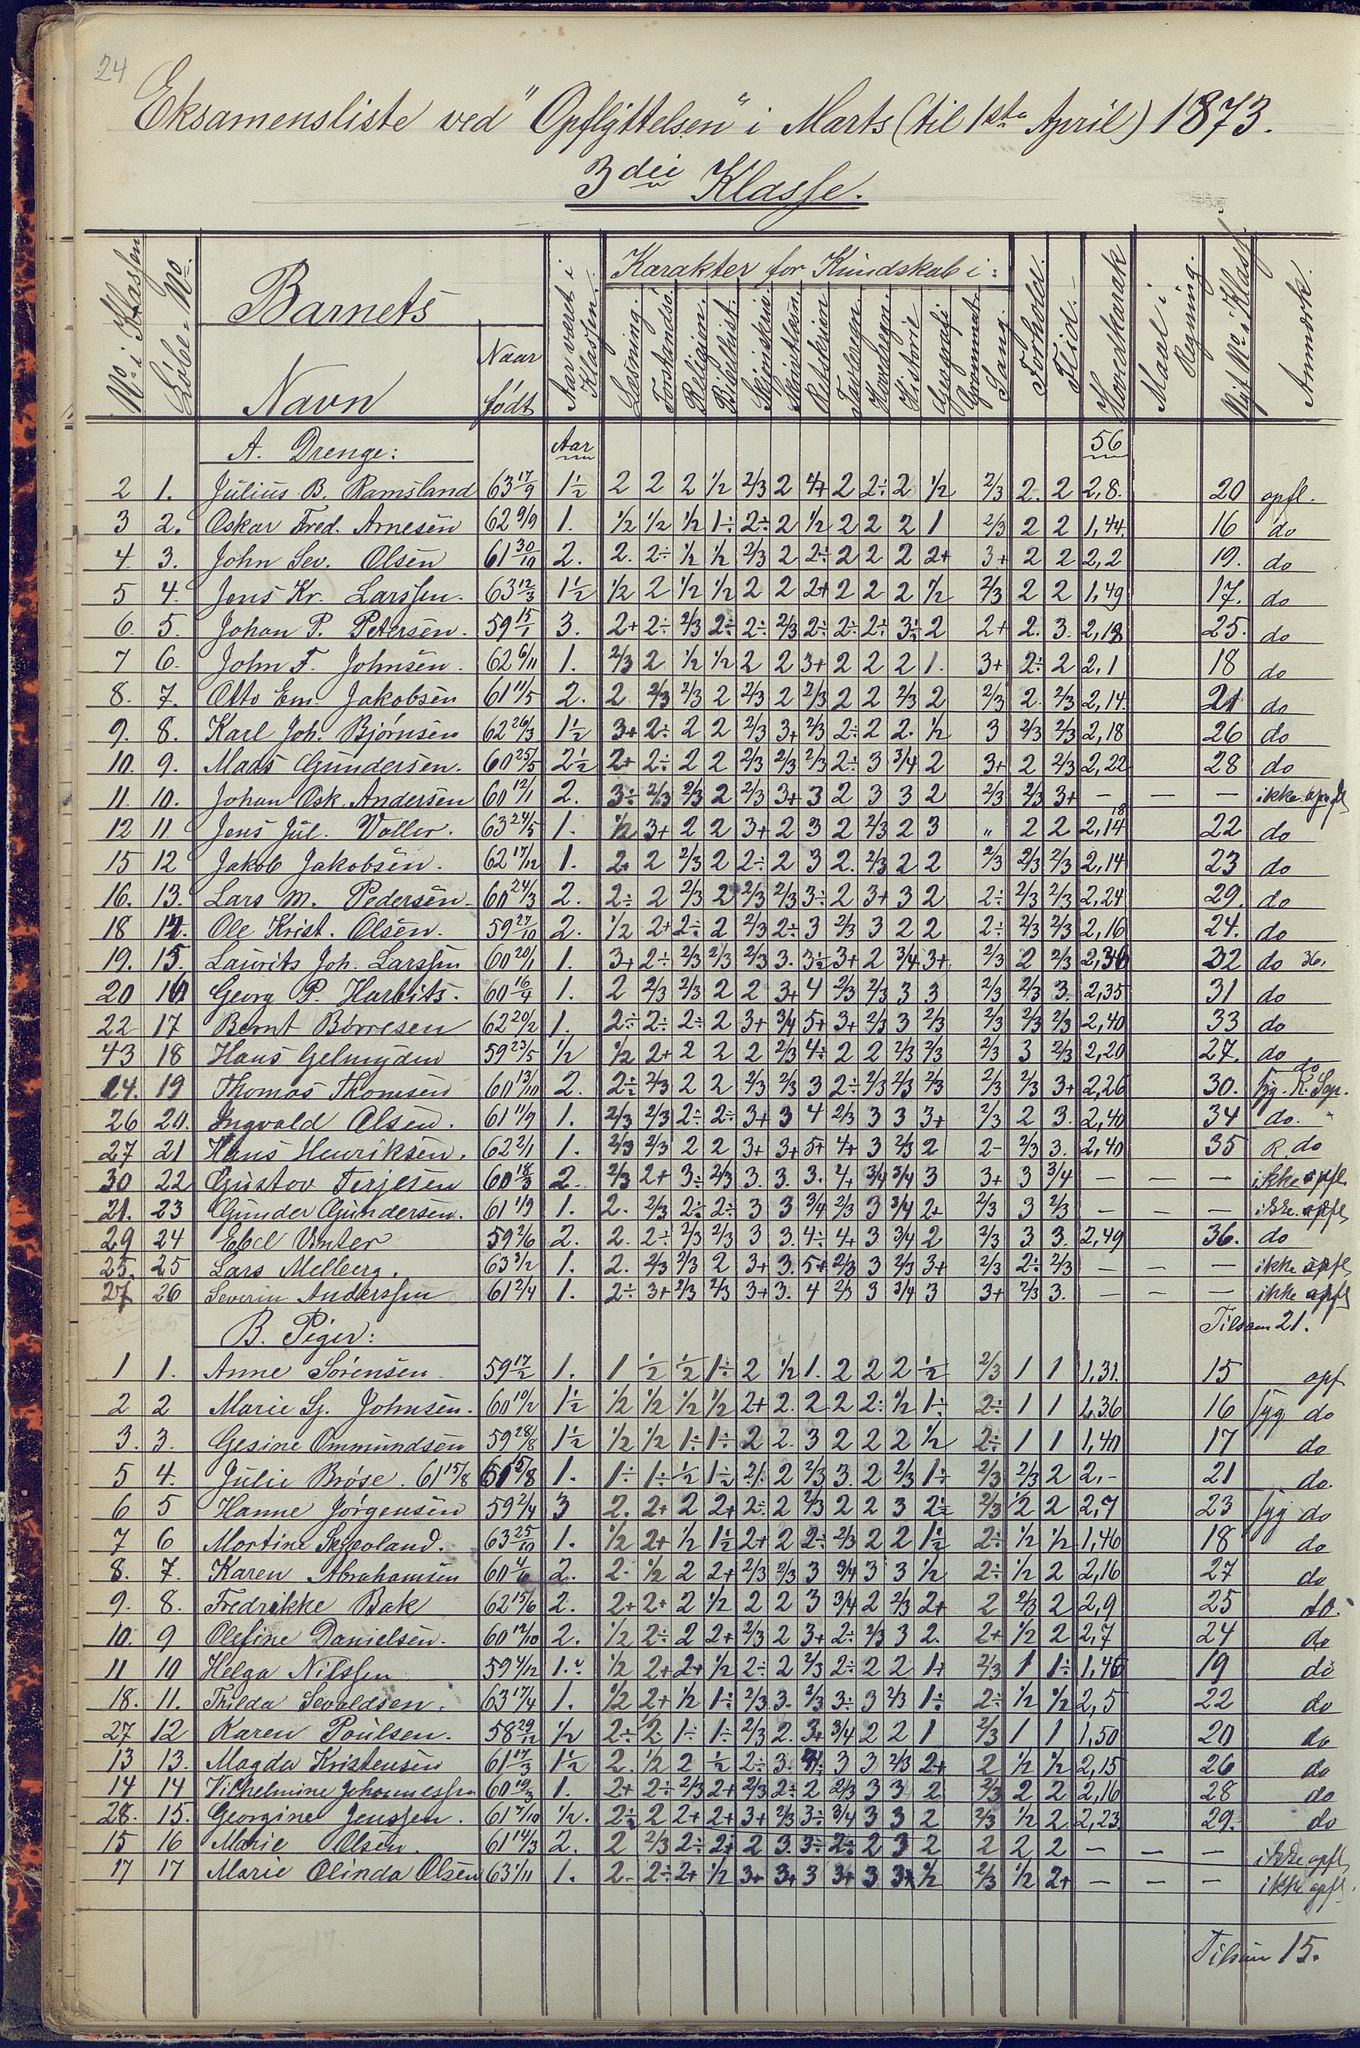 24
Eksamensliste ved "Opflyttelsen" i Marts (til 1ste April) 1873.
3die Klasse.
No i Klassen
Løbe-No.
Barnets
Navn
Naar født
Aar været i Klassen.
Karakter for Kundskab i:
Læsning.
Forstands.
Religion.
Bibelhist.
Skjønskriv.
Retskrivn
Tavleregn
Hovedregn.
Historie
Geografi
Grammat.
Sang.
Forhold.
Flid.
Hovedkarak
Maal i Regning.
Nyt No i Klass.
Anmærk.
A. Drenge: Aar 56
2 1. Julius B. Ramsland 63 17/9 1½ 2 2 2 1/2 2/3 2 4+ 2 2÷ 2 1/2 2/3 2. 2 2,8. 20 opfl.
3 2. Oskar Fred. Arnesen 62 9/9 1. 1/2 1/2 1/2 1÷ 2÷ 2 1/2 2 2 2 1 2/3 2 2 1,44. 16 do
4. 3. John Sev. Olsen 61 30/10 2. 2. 2÷ 1/2 1/2 2/3 2 2÷ 2 2 2 2+ 3+ 2 2 2,2 19. do
5 4. Jens Kr. Larssen. 63 12/3 1½ 1/2 2 1/2 1/2 2 2 2+ 2 2 2 1/2 2/3 2 2 1,49 17. do
6. 5. Johan P. Petersen. 59 15/1 3. 2+ 2÷ 2/3 2÷ 2÷ 2/3 2÷ 2÷ 2÷ 3÷ 2 2+ 2. 3. 2,18 25. do
7 6. John F. Johnsen. 62 6/11 1. 2/3 2 1/2 1/2 2 2 3+ 2 2 2 1. 3+ 2÷ 2 2,1 18 do
8. 7. Otto Em. Jakobsen 61 11/5 2. 2 2/3 2/3 2 2/3 2 2/3 2 2 2/3 2 2/3 2. 2/3 2,14. 21 do
9. 8. Karl Joh. Bjørnsen 62 26/3 1½ 3+ 2÷ 2 2 2/3 3+ 2/3 2÷ 2 2. 1/2 3 2/3 2/3 2,18 26 do
10. 9. Mads Gundersen. 60 25/5 2½ 2+ 2÷ 2 2 2/3 2/3 2/3 2÷ 3 3/4 2 3+ 2 2/3 2,22 28 do
11. 10. Johan Osk. Andersen 60 12/1 2. 3÷ 2/3 2/3 2 2/3 3+ 3 2 3 3 2 2/3 2/3 3+ — — — ikke opfl
12 11 Jens Jul. Voller. 63 24/5 1. 1/2 3+ 2 2 3+ 2 3 2 2/3 2 3 " 2 2 2,14 22 do
15 12 Jakob Jakobsen. 62 17/12 1. 2. 2 2/3 2 2÷ 2 3 2. 2/3 2 2 2/3 2/3 2/3 2,14 23 do
16. 13. Lars M. Pedersen. 60 24/3 2. 2÷ 2 2/3 2 2/3 2/3 3÷ 2 3+ 3 2 2÷ 2/3 2/3 2,24 29. do
18 14. Ole Krist. Olsen. 59 27/10 2. 1/2 2+ 2÷ 2 2/3 2÷ 3 2/3 3 2 2 2÷ 2/3 2/3 2,16 24. do
19. 15. Laurits Joh. Larssen 60 20/1 1. 3+ 2÷ 2/3 2/3 2/3 3. 3÷ 3+ 2 3/4 3+ 2/3 2 2/3 2,36 32 do 36.
20 16 Georg P. Harbits. 60 16/4 1. 2 2/3 2/3 2 2 3+ 4 2/3 2/3 3 3 2/3 2/3 3. 2,35 31 do
22 17 Bernt Børresen 62 20/2 1. 2÷ 2÷ 2÷ 2 3+ 3/4 5+ 3+ 2/3 3 2/3 2/3 2/3 2/3 2,40 33 do
43 18 Hans Gelmyden 59 23/5 1/2 1/2 2+ 2 2 2 2/3 4÷ 2 2 2/3 2/3 2/3 3 2/3 2,20 27. do
14. 19 Thomas Thomsen 60 13/10 2. 2÷ 2/3 2 2 2/3 2/3 3 2÷ 2/3 2/3 2/3 2/3 2/3 3+ 2,26 30. do
26 20. Ingvald Olsen. 61 11/9 1. 2/3 2/3 2÷ 2÷ 3+ 3 4 2/3 3 3 3+ 2/3 2 3. 2,40 34 do.
27 21 Hans Henriksen. 62 2/1 1. 2/3 2/3 2 2 3+ 3+ 5+ 4+ 3 2/3 2 2- 2/3 3. 2,40 35 R. do
30 22 Gustav Terjesen 60 18/3 2. 2/3 2+ 3÷ 2/3 3. 3. 3. 4+ 3/4 3/4 3 3+ 3 3/4 — — — ikke opfl
21. 23 Gunder Gundersen. 61 1/9 1. 2. 2/3 2÷ 2÷ 3 3 3/4 2/3 3 3/4 2+ 2/3 3 2/3 — — — ikke opfl
29 24 Ebel Unter 59 2/6 2. 2. 2÷ 2/3 2/3 3 3. 4÷ 4+ 3 3/4 2 2/3 3 3. 2,49 36. do
25. 25 Lars Melberg. 63 3/2 1. 2. 2/3 2/3 2 3+ 3. 5+ 2/3 3 2/3 3+ 2/3 2÷ 2/3 — — — ikke opfl
27 26 Severin Anderssen 61 2/4 1. 2÷ 3+ 2/3 2/3 3+ 3. 4 2/3 3 3/4 3 3+ 2/3 3. — — — ikke opfl
B. Piger: Tilsam 21.
1 1. Anne Sørensen. 59 17/2 1. 1 1/2 1/2 1÷ 2 1/2 1. 2 2 2 1/2 2/3 1 1 1,31. 15 opf
2 2 Marie Sj. Johnsen. 60 10/2 1½ 1/2 1/2 1/2 1/2 2+ 2. 2 2 2÷ 1/2 1÷ 2÷ 1 1 1,36 16 syg do
3. 3. Gesine Ommundsen 59 28/8 1½ 1/2 1/2 1÷ 1÷ 2 2. 3 2 2 2 1/2 2÷ 1 1 1,40 17 do
5 4. Julie Brøse. 61 15/8 61 5/8 1. 1÷ 1÷ 1/2 1÷ 2/. 2 2/3 3. 2 2/3 1÷ 2/3 2/3 2 2,- 21 do.
6 5 Hanne Jørgensen 59 2/4 3 2. 2+ 2 2+ 2÷ 2 2/3 2 2 3 2÷ 2/3 1/2 2 2,7 23 syg do
7 6 Mortine 63 25/10 1. 1/2 2+ 1/2 1½ 2+ 2 2÷ 2/3 2 2 1½ 2÷ 1/2 1/2 1,46 18 do
8. 7. Karen Abrahamsen 60 4/6 2. 2. 1/2 2 2+ 2/3 2/3 3 3/4 3 3 1/2 2÷ 1/2 2 2,16 27 do
9. 8. Fredrikke Bak 62 15/6 2. 2+ 2+ 2 1/2 2 2 3 3/4 2 2/3 2+ 2 2/3 2 2,9 25 do.
10. 9 Olefine Danielsen. 60 12/10 2. 1/2 2÷ 2 2+ 2/3 2 3+ 2÷ 2/3 3 2. 2+ 1/2 2 2,7 24 do
11 10 Helga Nilssen 59 4/12 1. 1/2 2+ 2+ 1/2 2÷ 2 2/3 2÷ 2 2 1+ 2/3 1 1÷ 1,46 19 do
18. 11. Thilda Sevaldsen. 63 17/4 1. 1/2 2+ 1/2 1÷ 2/3 3. 2/3 3÷ 3 2/3 1÷ 2÷ 1/2 1/2 2,5 22 do
27 12 Karen Poulsen. 58 29/12 1/2 2÷ 1/2 1÷ 1÷ 2/3 2. 3+ 3/4 2 2 1 2/3 1 1 1,50 20 do
13 13. Magda Kristensen 61 17/3 1½ 2. 1/2 2 1/2 2÷ 3. 4÷ 3 3 2/3 2+ 2 1/2 1/2 2,15 26 do
14 14 Vilhelmine Johannessen 60 19/3 1. 2+ 2÷ 2/3 2+ 2/3 2÷ 2 2/3 3 3 2 2/3 2 2 2,16 28 do
28. 15. Georgine Jenssen. 61 7/10 1/2. 2÷ 2 2+ 2+ 3+ 2/3 3÷ 3/4 3 3 2 2/3 1/2 2 2,23 29. do
15 16 Marie Olsen. 61 14/3 2. 2 2/3 2÷ 2+ 2 3. 3÷ 2÷ 2 3 2 2 2 2 — — — ikke opfl
17 17 Marie Olinda Olsen 63 1/11 1. 2- 2÷ 2+ 1/2 3+ 3+ 3 3+ 3 3+ 1/2 2/3 1/2 2+ — — — ikke opfl.
Tilsam 15.